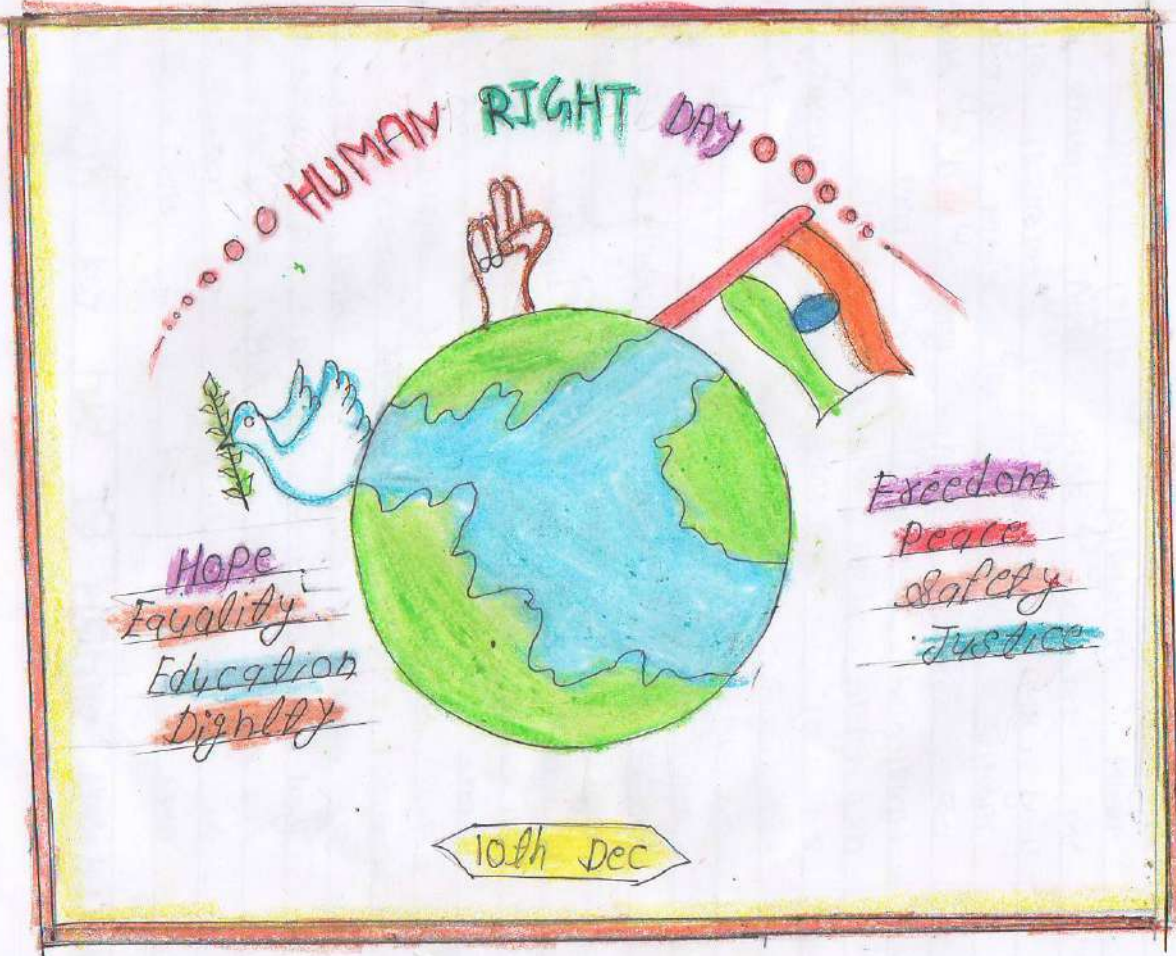 HUMAN RIGHT DAY
Hope
Equality
Education
Dignity
Freedom
Peace
Safety
Justice
10th Dec